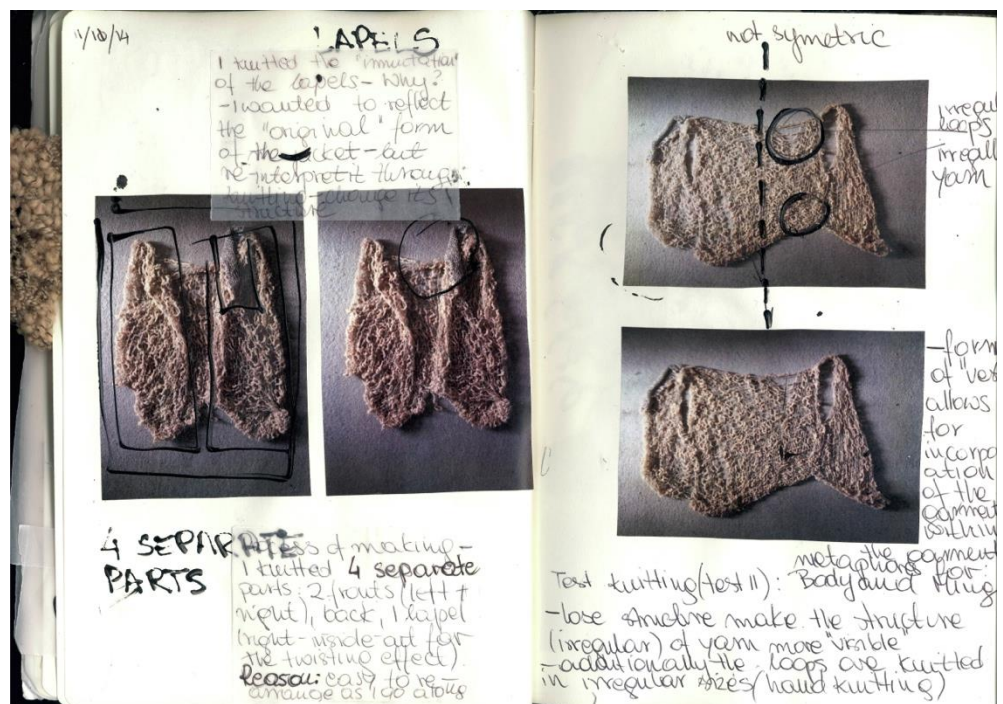 11/10/14
LAPELS
I knitted the "immitation"
of the lapels - Why?
- I wanted to reflect
the "original" form
of the jacket - but
re-interpret it through
knitting - change its
structure
4 SEPARATE
PARTS
Process of making -
I knitted 4 separate
parts: 2 fronts (left +
right), back, 1 lapel
(right - inside - out for
the twisting effect).
Reason: easy to re-
arrange as I go along
not symetric
irregul
loops
irregull
yarn
- form
of "ves
allows
for
incorpo
ation
of the
garment
within
the garment
metaphors for
Test knitting (test II): Body and Ming
- lose structure make the structure
(irregular) of yarn more "visible"
- additionally the loops are knitted
in irregular sizes (hand knitting)